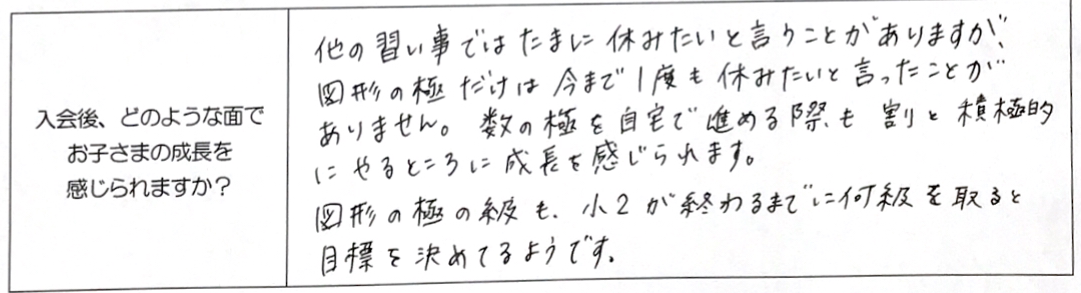 入会後、どのような面で
お子さまの成長を
感じられますか？
他の習い事ではたまに休みたいと言うことがありますが、
図形の極だけは今まで1度も休みたいと言ったことが
ありません。数の極を自宅で進める際も割と積極的
にやるところに成長を感じられます。
図形の極の級も、小2が終わるまでに何級を取ると
目標を決めてるようです。